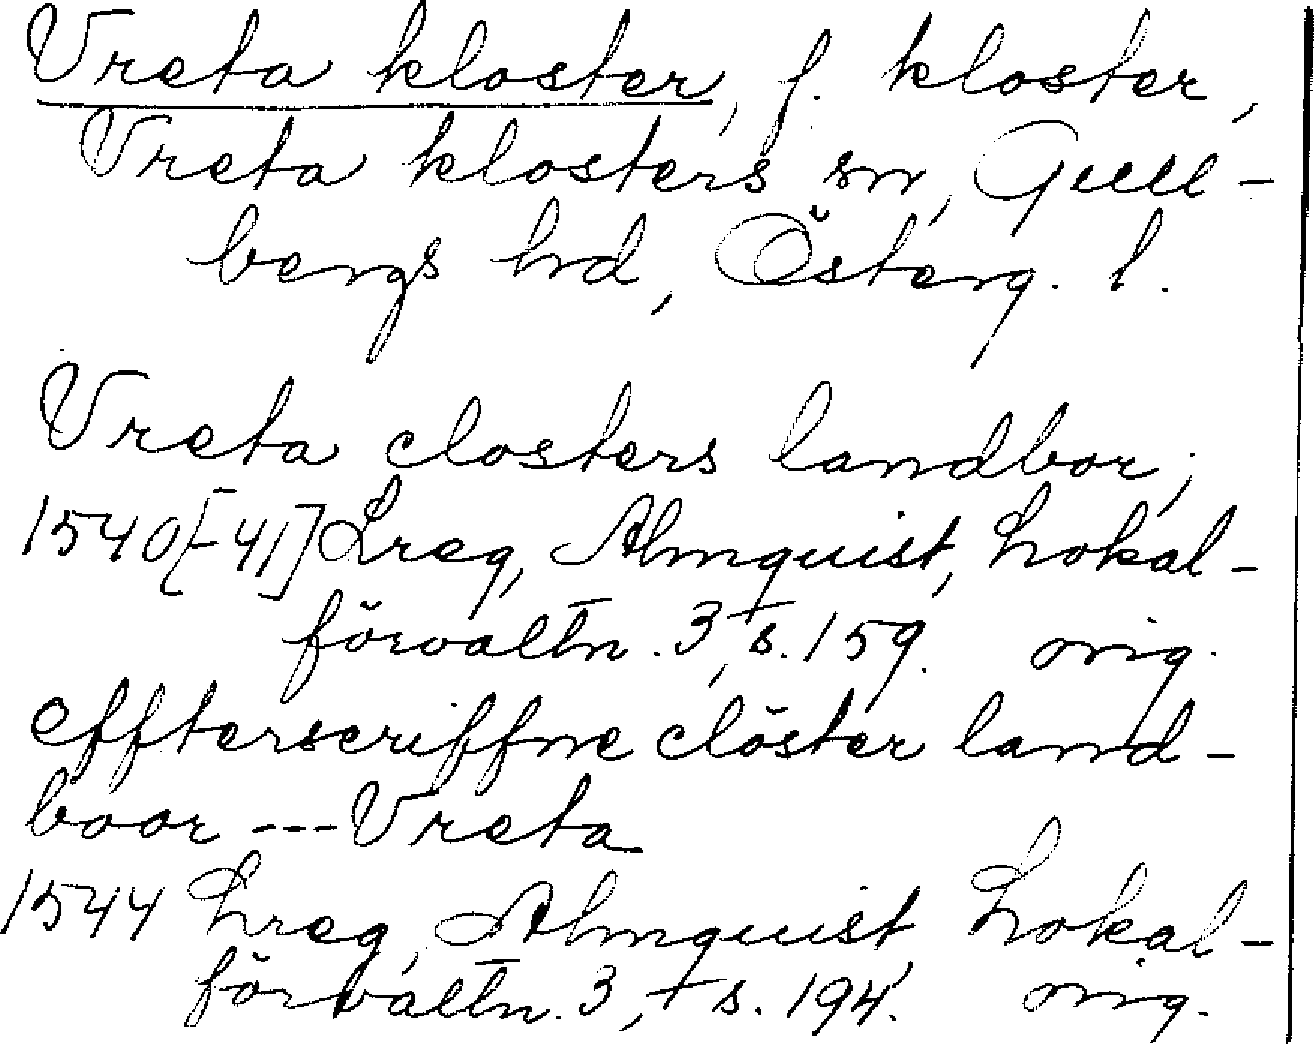 Vreta kloster, f. kloster,
Vreta klosters sn, Gull-
bergs hd, Österg. l.
Vreta closters landbor;
1540[-41] Lreg, Almquist, Lokal-
förvaltn. 3, + s. 159. orig.
effterscriffne clöster land-
boor --- Vreta
1544 Lreg, Almquist, Lokal-
förvaltn. 3, + s. 194. orig.